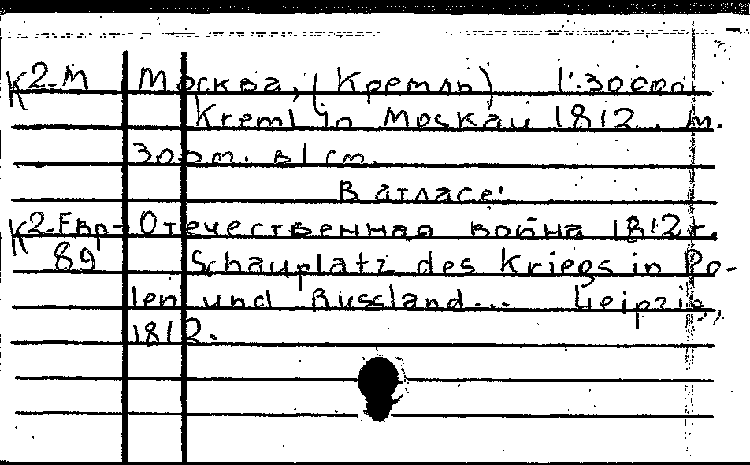 К2-М Москва, (Кремль) 1:30000
Kreml in Moskau 1812. м.
300m. в 1 cm.
В атласе:
К2-Евр- Отечественная война 1812 г.
89 Schauplatz des Kriegs in Po-
len und Russland... Leipzig,
1812.